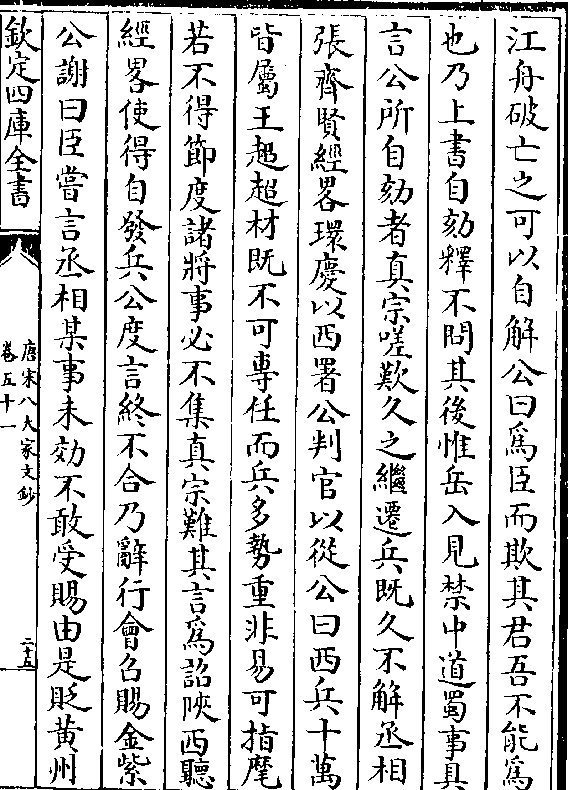 江舟破亡之可以自解公曰爲臣而欺其君吾不能爲
也乃上書自劾釋不問其後惟岳入見禁中道蜀事具
言公所自劾者真宗嗟歎久之繼遷兵既久不解丞相
張齊賢經畧環慶以西署公判官以從公曰西兵十萬
皆屬王超超材既不可專任而兵多勢重非易可指麾
若不得節度諸將事必不集真宗難其言爲詔陜西聽
經畧使得自發兵公度言終不合乃辭行會召賜金紫
公謝曰臣嘗言丞相某事未効不敢受賜由是貶黄州
欽定四庫全書
唐宋八大家文鈔
卷五十一
二十五